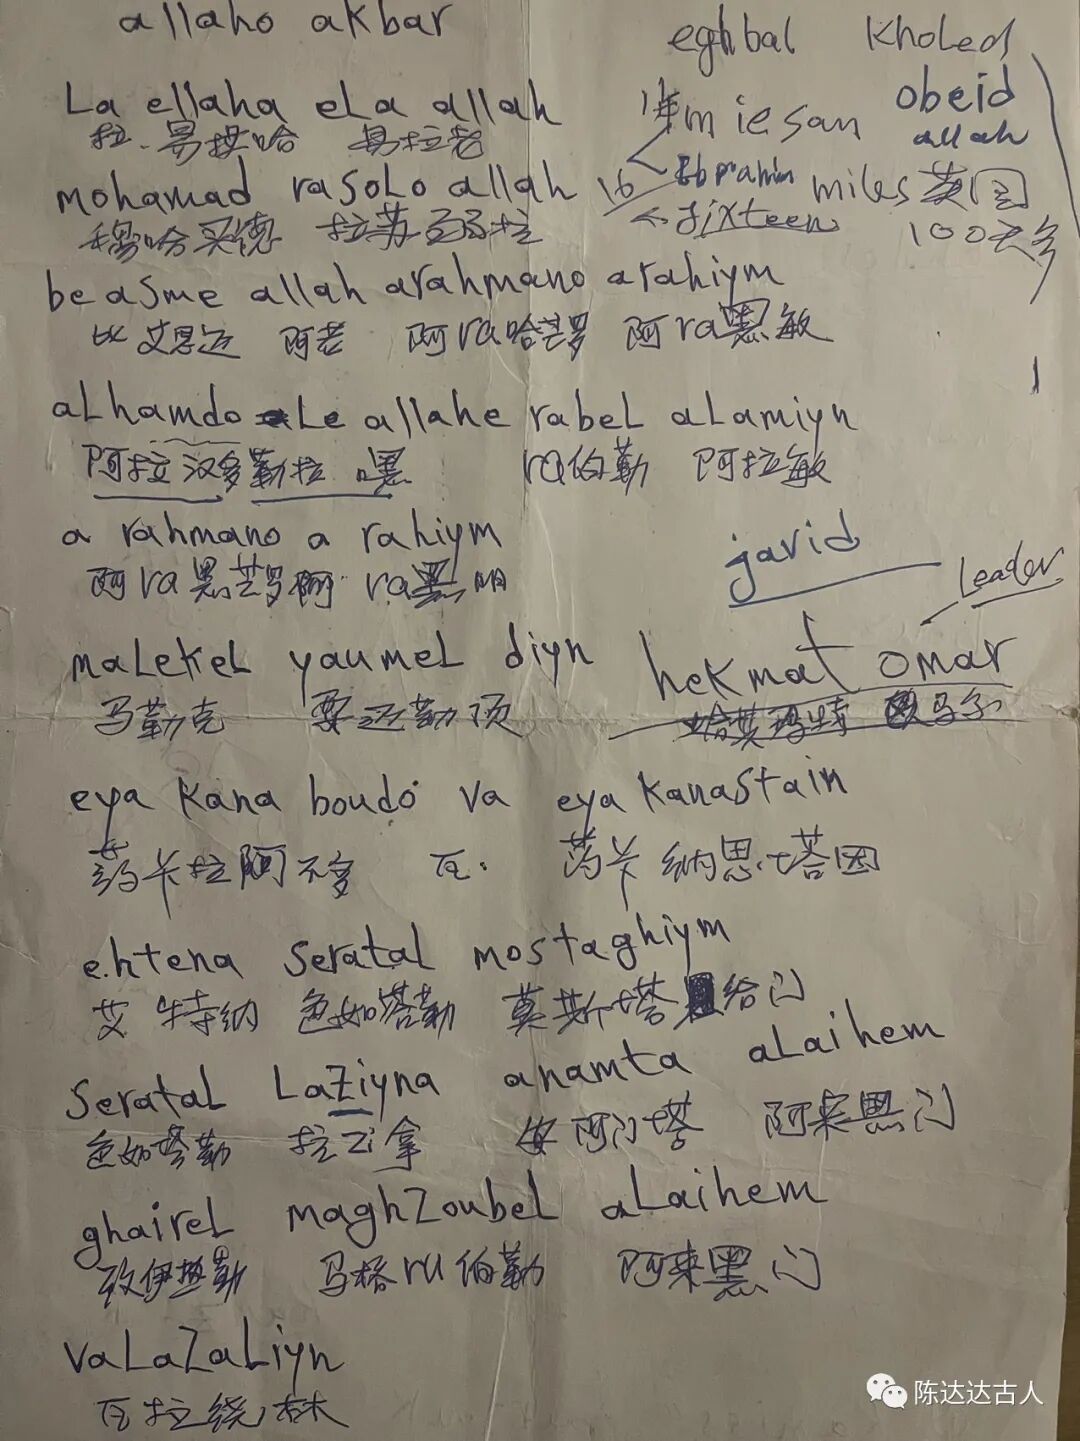 allaho akbar
eghbal Kholed
La ellaha eLa allah
obeid
1年miesan
allah
拉.易拉哈 易拉若
mohamad rasoLo allah
16 Ebrahim miles英国
sixteen
100天多
穆哈买德 拉苏 拉
be asme allah arahmano arahiym
比艾思迈 阿若 阿ra哈芒罗 阿ra黑敏
aLhamdo Le allahe rabeL aLamiyn
阿拉汉多勒拉 嘿 ra伯勒 阿拉敏
a rahmano a rahiym
阿ra黑芒罗阿 ra黑明
javid
Leader
maLekeL yaumeL diyn
hekmat omar
马勒克 要迈勒顶
哈莫玛特 欧马尔
eya kana boudo va eya kanastain
药卡拉阿不多 瓦. 药卡纳思塔因
e.htena seratal mostaghiym
艾特纳 色如塔勒 莫斯塔给门
SerataL LaZiyna anamta aLaihem
色如塔勒 拉Zi拿 安阿门塔 阿来黑门
ghaireL maghZoubeL aLaihem
伊 勒 马格ru伯勒 阿来黑门
VaLaZaLiyn
瓦拉绕林
陈达达古人